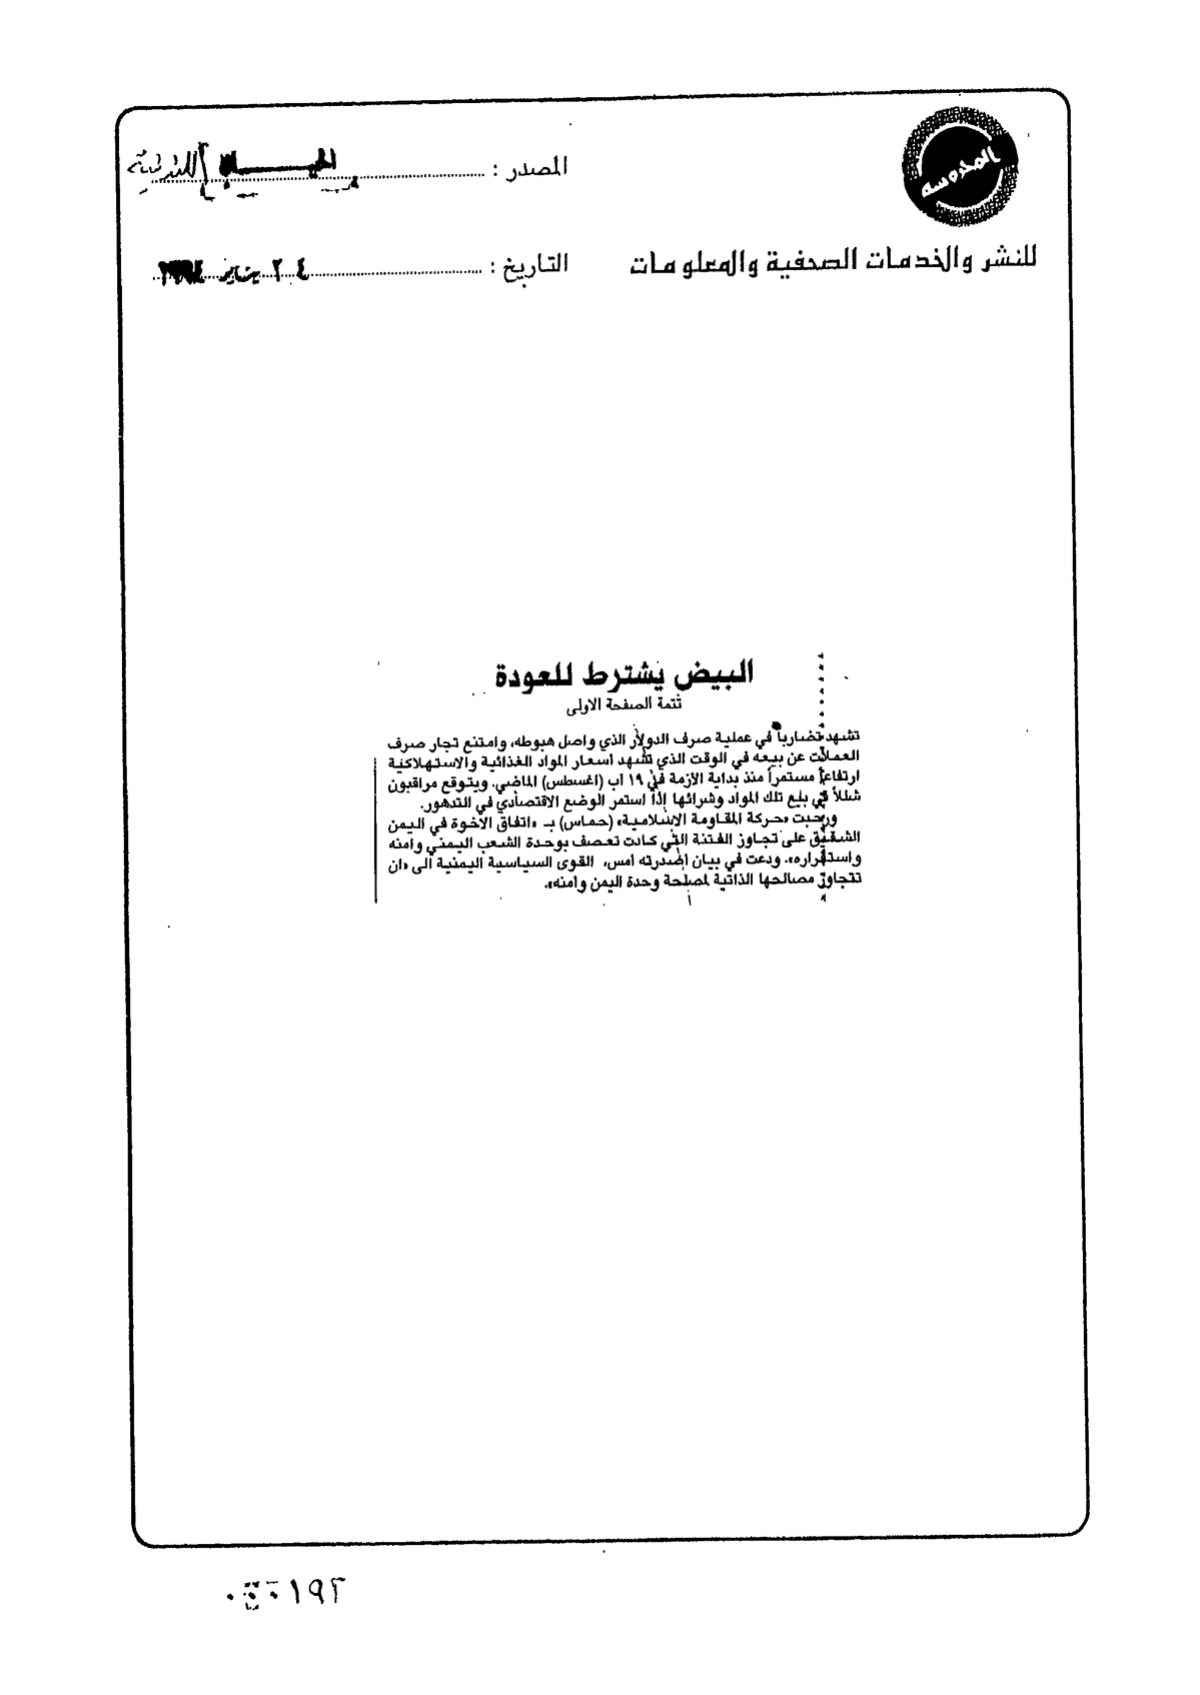 المحروسة
المصدر : الحياة اللندنية
للنشر والخدمات الصحفية والمعلومات
التاريخ : ٢٤ يناير
البيض يشترط للعودة
تتمة الصفحة الاولى
تشهد تضارباً في عملية صرف الدولار الذي واصل هبوطه، وامتنع تجار صرف
العملات عن بيعه في الوقت الذي تشهد اسعار المواد الغذائية والاستهلاكية
ارتفاعاً مستمراً منذ بداية الازمة في ١٩ اب (اغسطس) الماضي. ويتوقع مراقبون
شللاً في بيع تلك المواد وشرائها إذا استمر الوضع الاقتصادي في التدهور.
ورحبت «حركة المقاومة الاسلامية» (حماس) بـ «اتفاق الاخوة في اليمن
الشقيق على تجاوز الفتنة التي كادت تعصف بوحدة الشعب اليمني وامنه
واستقراره». ودعت في بيان اصدرته امس، القوى السياسية اليمنية الى «ان
تتجاوز مصالحها الذاتية لمصلحة وحدة اليمن وامنه».